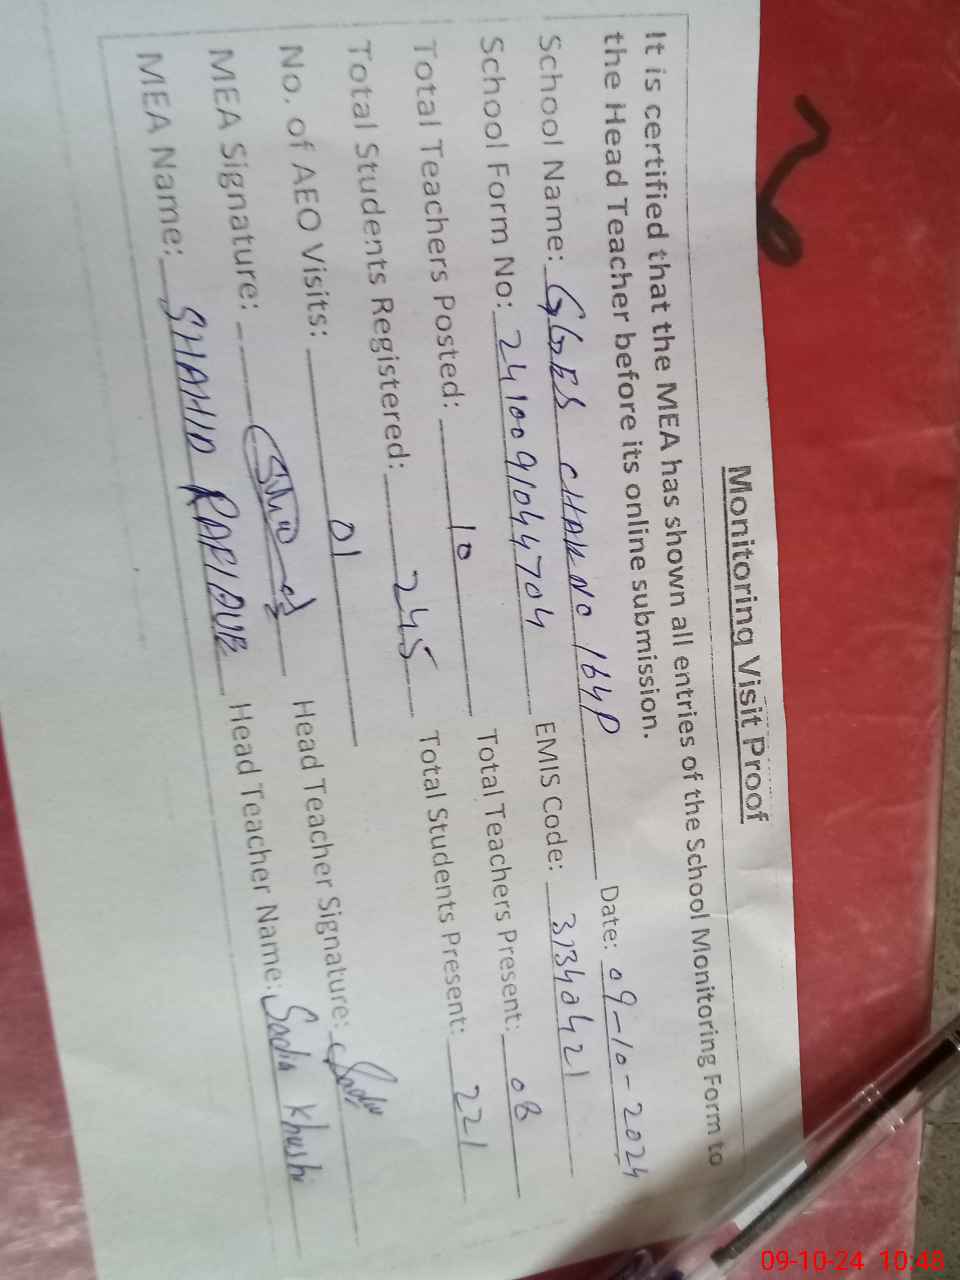 Monitoring Visit Proof
It is certified that the MEA has shown all entries of the School Monitoring Form to
the Head Teacher before its online submission.
School Name: GGES CHAK NO 164P Date: 09-10-2024
School Form No: 241009104704 EMIS Code: 31340421
Total Teachers Posted: 10 Total Teachers Present: 08
Total Students Registered: 245 Total Students Present: 221
No. of AEO Visits: 01
MEA Signature: Head Teacher Signature: Sadia
MEA Name: SHAHID RAFIQUE Head Teacher Name: Sadia Khushi
09-10-24 10:48